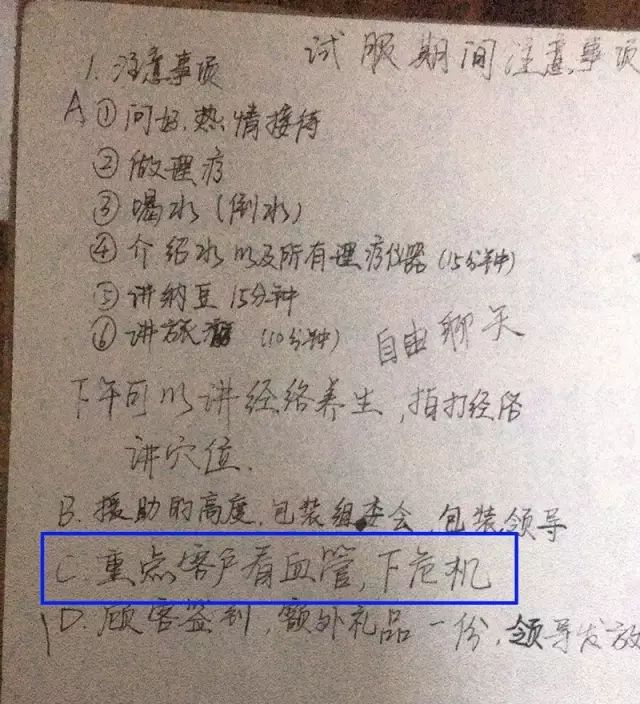 试服期间注意事项
1. 注意事项
A ① 问好.热情接待
② 做理疗
③ 喝水(倒水)
④ 介绍水以及所有理疗仪器(15分钟)
⑤ 讲纳豆 15分钟
⑥ 讲旅 (10分钟) 自由聊天
下午可以讲经络养生,拍打经络
讲穴位.
B. 援助的高度,包装组委会,包装领导
C 重点客户看血管,下危机
D. 顾客签到,额外礼品一份,领导发放